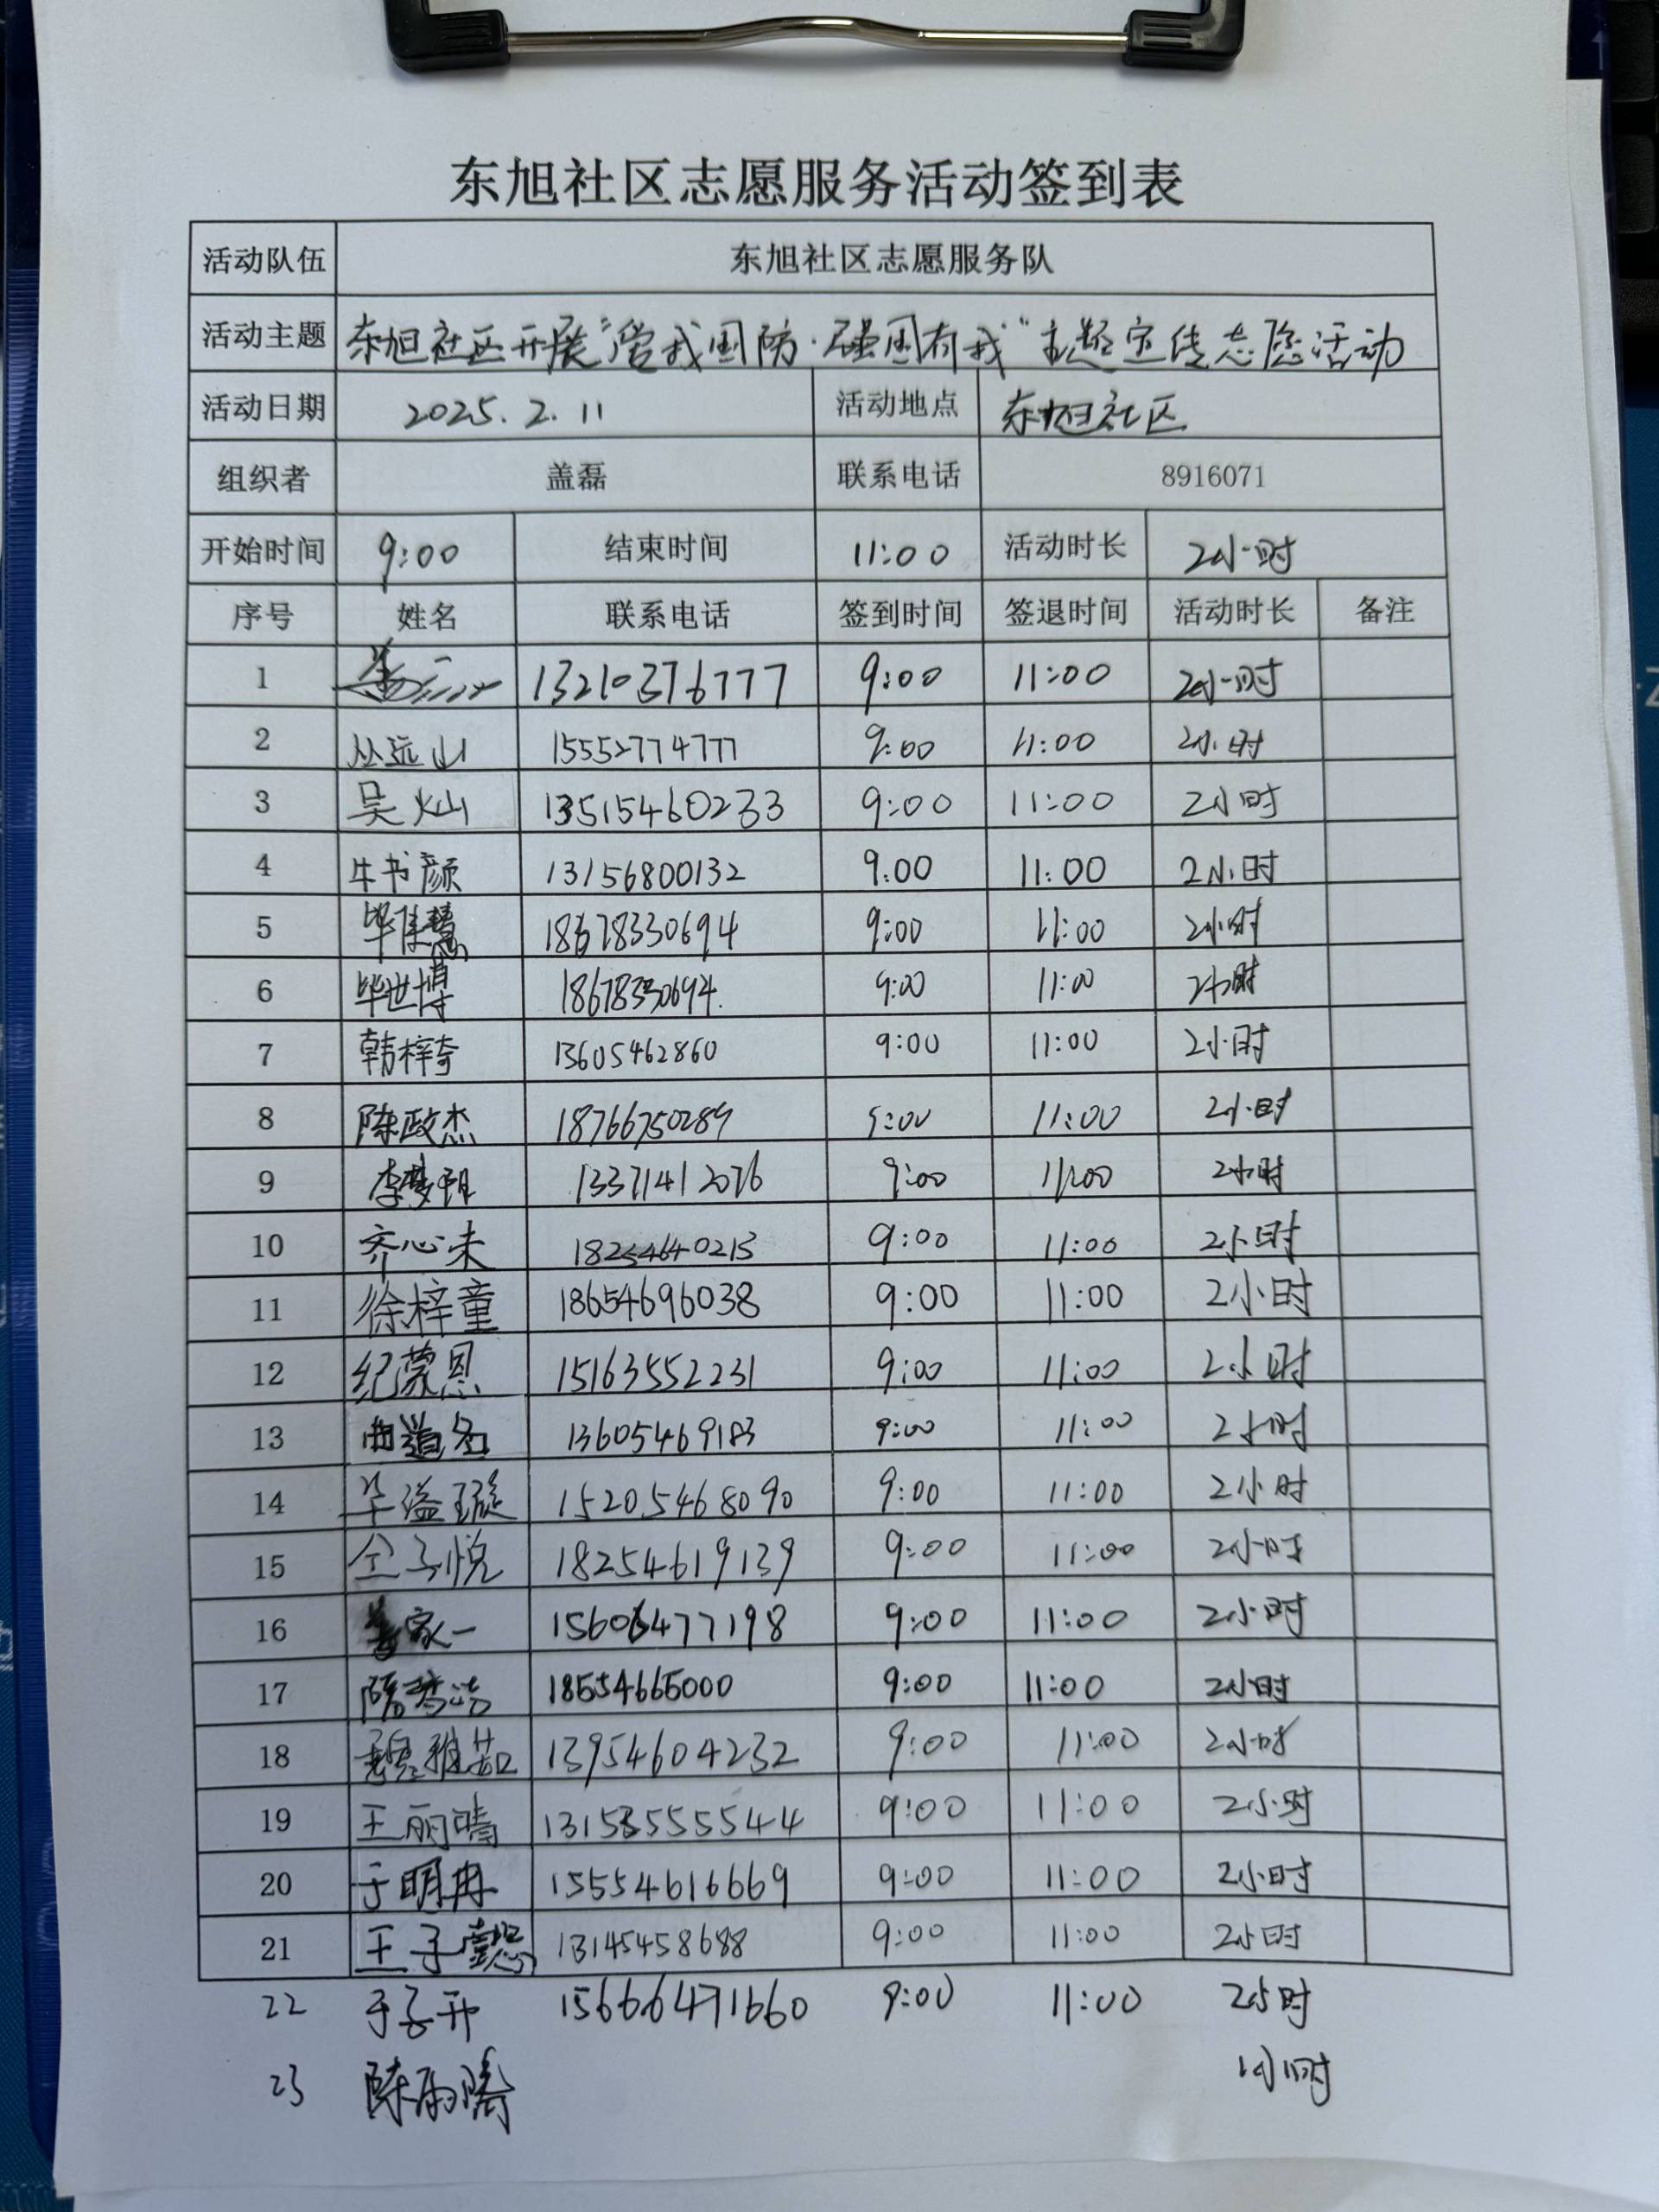 东旭社区志愿服务活动签到表
活动队伍 东旭社区志愿服务队
活动主题 东旭社区开展"爱我国防·强国有我"主题宣传志愿活动
活动日期 2025.2.11 活动地点 东旭社区
组织者 盖磊 联系电话 8916071
开始时间 9:00 结束时间 11:00 活动时长 2小时
序号 姓名 联系电话 签到时间 签退时间 活动时长 备注
1 13210376777 9:00 11:00 2小时
2 丛远山 15552774777 9:00 11:00 2小时
3 吴灿 13515460233 9:00 11:00 2小时
4 牛书颜 13156800132 9:00 11:00 2小时
5 毕佳慧 18678330694 9:00 11:00 2小时
6 毕世博 18678330694 9:00 11:00 2小时
7 韩梓奇 13605462860 9:00 11:00 2小时
8 陈政杰 18766750289 9:00 11:00 2小时
9 13371412076 9:00 11:00 2小时
10 齐心未 18254640215 9:00 11:00 2小时
11 徐梓童 18654696038 9:00 11:00 2小时
12 纪蒙恩 15163552231 9:00 11:00 2小时
13 曲道名 13605469183 9:00 11:00 2小时
14 15205468090 9:00 11:00 2小时
15 仝子悦 18254619139 9:00 11:00 2小时
16 家一 15606477198 9:00 11:00 2小时
17 18554665000 9:00 11:00 2小时
18 穆雅茹 13954604232 9:00 11:00 2小时
19 王丽晴 13153555544 9:00 11:00 2小时
20 于明冉 15554616669 9:00 11:00 2小时
21 王子懿 13145458688 9:00 11:00 2小时
22 于子开 15666471660 9:00 11:00 2小时
23 陈雨腾 小时